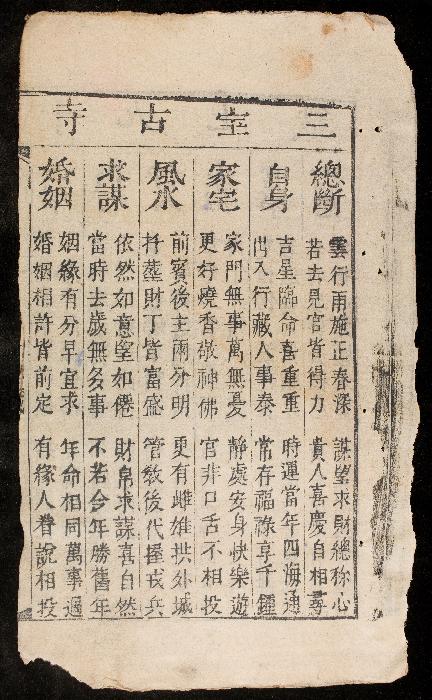 三宝古寺
總斷
雲行雨施正春深 謀望求財總称心
若去見官皆得力 貴人喜慶自相尋
自身
吉星臨命喜重重 時運當年四海通
出入行藏人事泰 常存福祿享千鍾
家宅
家門無事萬無憂 靜處安身快樂遊
更好燒香敬神佛 官非口舌不相投
風水
前賓後主兩分明 更有雌雄拱外城
扦塟財丁皆富盛 管教後代握戎兵
求謀
依然如意望如僊 財帛求謀喜自然
當時去歲無多事 不若今年勝舊年
婚姻
姻緣有分早宜求 年命相同萬事週
婚姻相許皆前定 有緣人眷說相投